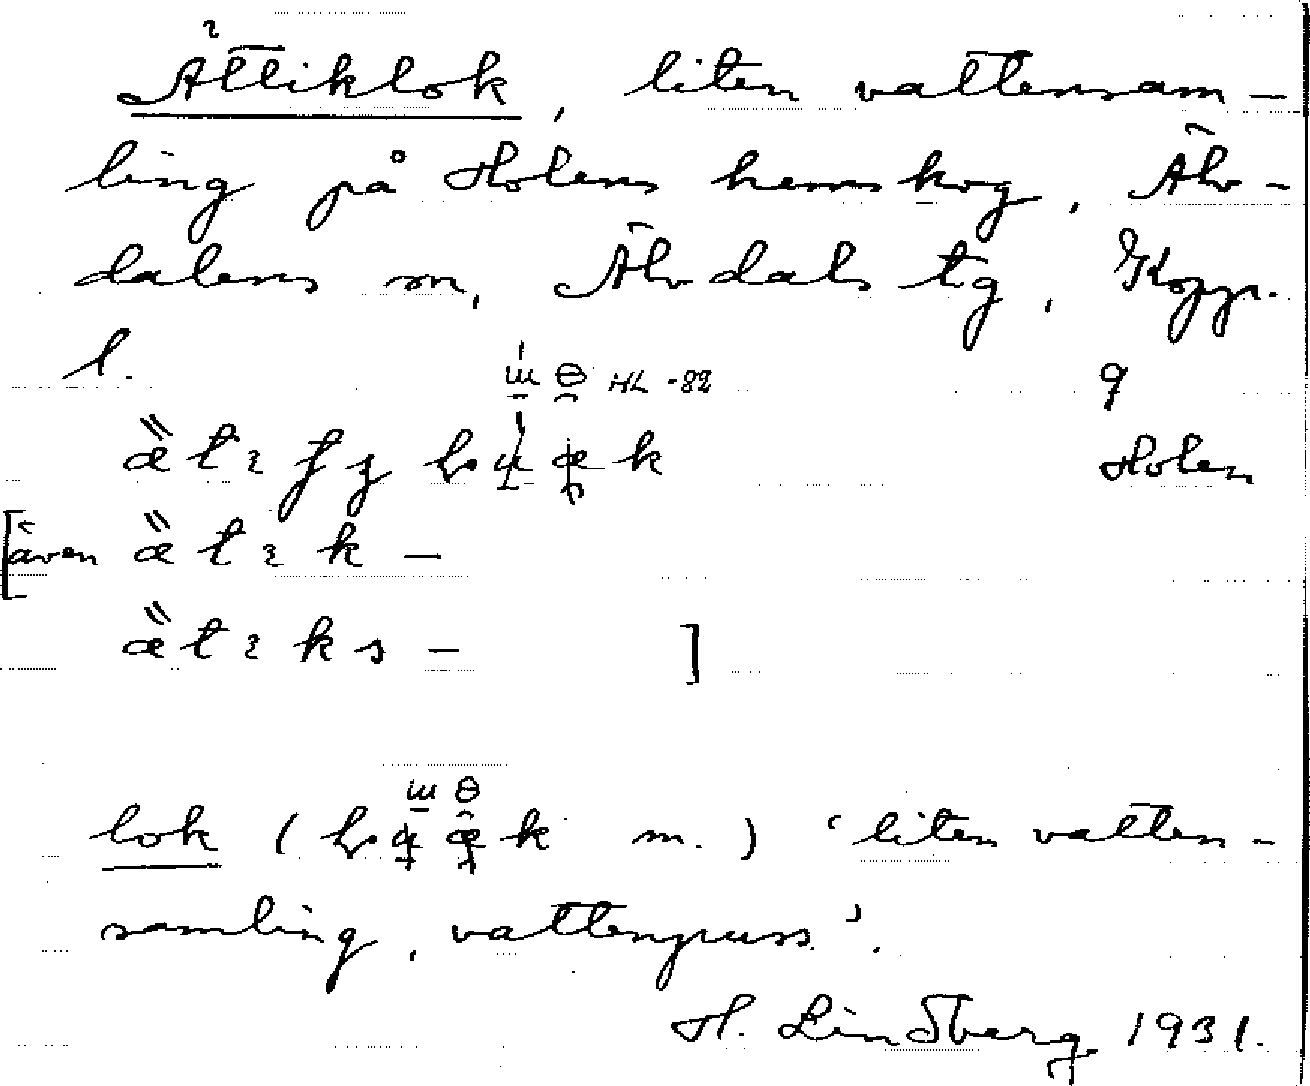 Ättiklok, liten vattensam-
ling på Holens hemskog, Älv-
dalens sn, Älvdals tg, Kopp.
l.
HL -82
9
Holen
[även
]
lok ( k m.) 'liten vatten-
samling, vattenpuss'.
H. Lindberg 1931.